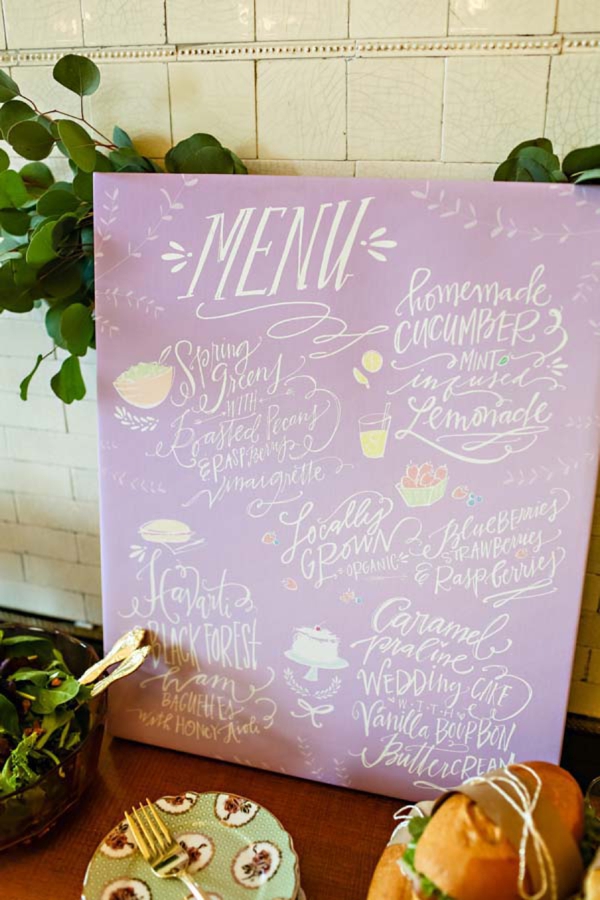 MENU
Spring
Greens
WITH
Roasted Pecans
& RASPBERRY
Vinaigrette
homemade
CUCUMBER
MINT
infused
Lemonade
Locally
GROWN
& ORGANIC
BlueBERRIES
STRAWBERRIES
& Raspberries
Havarti &
BLACK FOREST
ham
BAGUETTES
with HONEY Aioli
Caramel
praline
WEDDING CAKE
WITH
Vanilla BOURBON
ButterCREAM